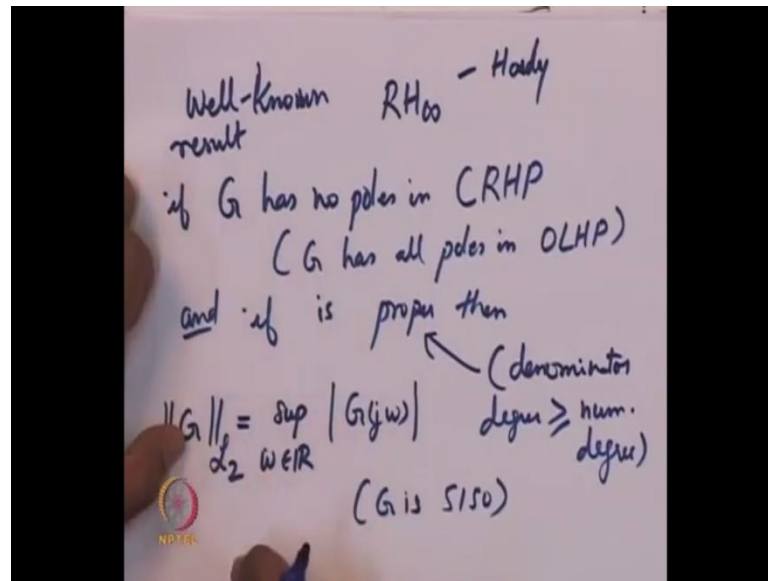 Well-Known RH∞ - Hardy
result
if G has no poles in CRHP
(G has all poles in OLHP)
and if is proper then
(denominator
degree ≥ num.
degree)
||G||_L2 = sup_{ω∈ℝ} |G(jω)|
(G is SISO)
NPTEL